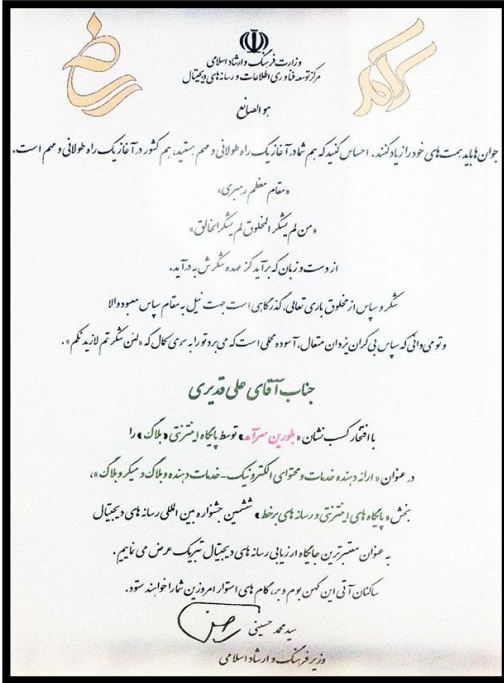 وزارت فرهنگ و ارشاد اسلامی
مرکز توسعه فناوری اطلاعات و رسانه های دیجیتال
هوالصانع
جوان ها باید همت های خود را زیاد کنند. احساس کنید که هم شما در آغاز یک راه طولانی و مهم هستید، هم کشور در آغاز یک راه طولانی و مهم است.
«مقام معظم رهبری»
«من لم یشکر المخلوق لم یشکر الخالق»
از دست و زبان که برآید کز عهده شکرش به درآید.
شکر و سپاس از مخلوق باری تعالی، گذرگاهی است جهت نیل به مقام سپاس معبود والا
و تو می دانی که سپاس بی کران یزدان متعال، آسوده محلی است که می برد تو را به سوی کمال که «لئن شکرتم لازیدنکم».
جناب آقای علی قدیری
با افتخار کسب نشان «بلورین سرآمد» توسط پایگاه اینترنتی «بلاگ» را
در عنوان «ارائه دهنده خدمات و محتوای الکترونیک-خدمات دهنده وبلاگ و میکروبلاگ»،
بخش «پایگاه های اینترنتی و رسانه های برخط» ششمین جشنواره بین المللی رسانه های دیجیتال
به عنوان معتبرترین جایگاه ارزیابی رسانه های دیجیتال تبریک عرض می نماییم.
ساکنان آتی این کهن بوم و بر، گام های استوار امروزین شما را خواهند ستود.
سید محمد حسینی
وزیر فرهنگ و ارشاد اسلامی